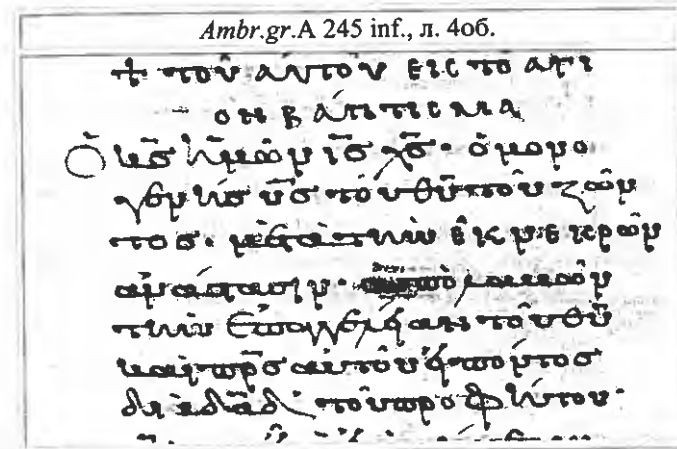 Ambr.gr.A 245 inf., л. 4об.
+ τοῦ αυτοῦ εις το αγι
ον βάπτισμα
Ὁ κ̅ς̅ ἡμῶν ι̅ς̅ χ̅ς̅· ὁ μονο
γενὴς υ̅ς̅ τοῦ θ̅υ̅ τοῦ ζῶν
τος· μετὰ τὴν ἐκ νεκρῶν
ἀνάστασιν·
τὴν ἐπαγγελίαν τοῦ θ̅υ̅
καὶ π̅ρ̅ς̅ αὐτοῦ εἰπόντος
διὰ δ̅α̅δ̅ τοῦ προφήτου·